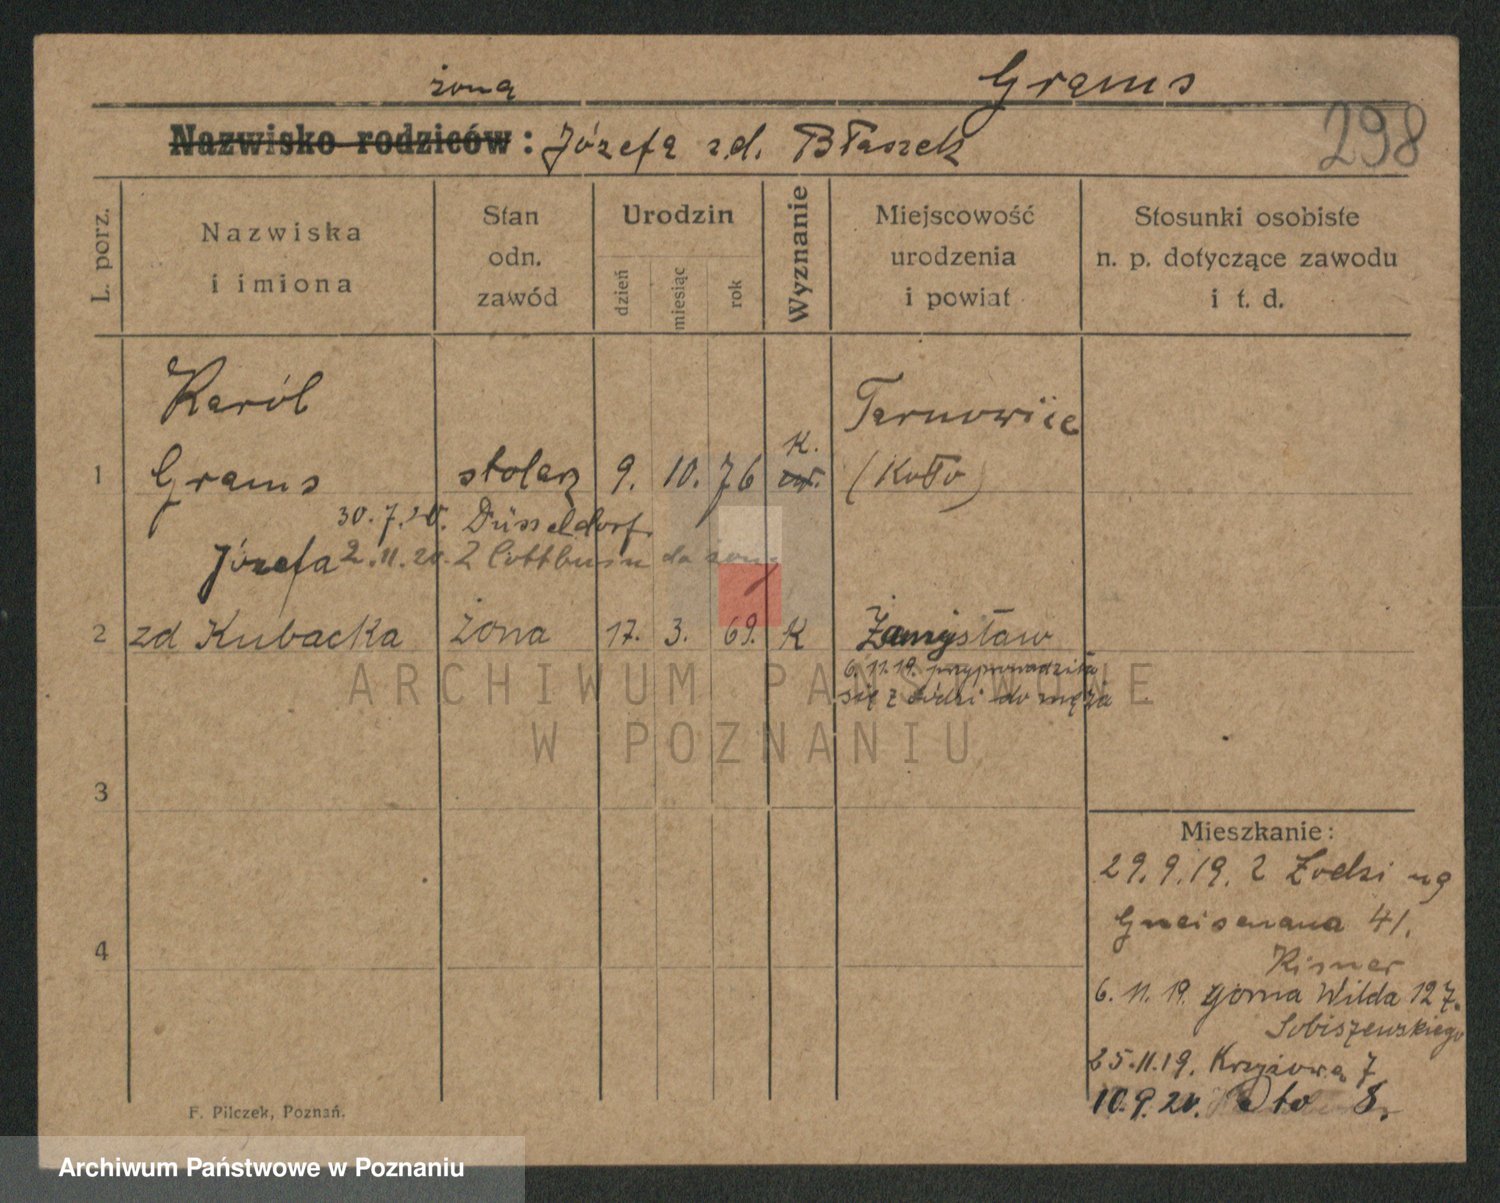 żona Grams
298
Nazwisko rodziców: Józefa zd. Błaszek
L. porz.
Nazwiska i imiona
Stan odn. zawód
Urodzin
dzień
miesiąc
rok
Wyznanie
Miejscowość urodzenia i powiat
Stosunki osobiste n. p. dotyczące zawodu i t. d.
Karól
Tarnowiie
K.
1 Grams stolarz 9. 10. 76 (Koło)
30. 7. 20. Düsseldorf
Józefa 2. 11. 20. z Cottbusu do żony
2 zd Kubacka żona 17. 3. 69. K Zamysław
6. 11. 19. przyprowadziła
się z Łodzi do męża
3
Mieszkanie:
29. 9. 19. z Łodzi
Gneisenaua 41.
4
6. 11. 19. Górna Wilda 127.
Sobiszewskiego
25. 11. 19. Krzyżowa 7
10. 9. 20. 8.
F. Pilczek, Poznań.
ARCHIWUM PAŃSTWOWE
W POZNANIU
Archiwum Państwowe w Poznaniu